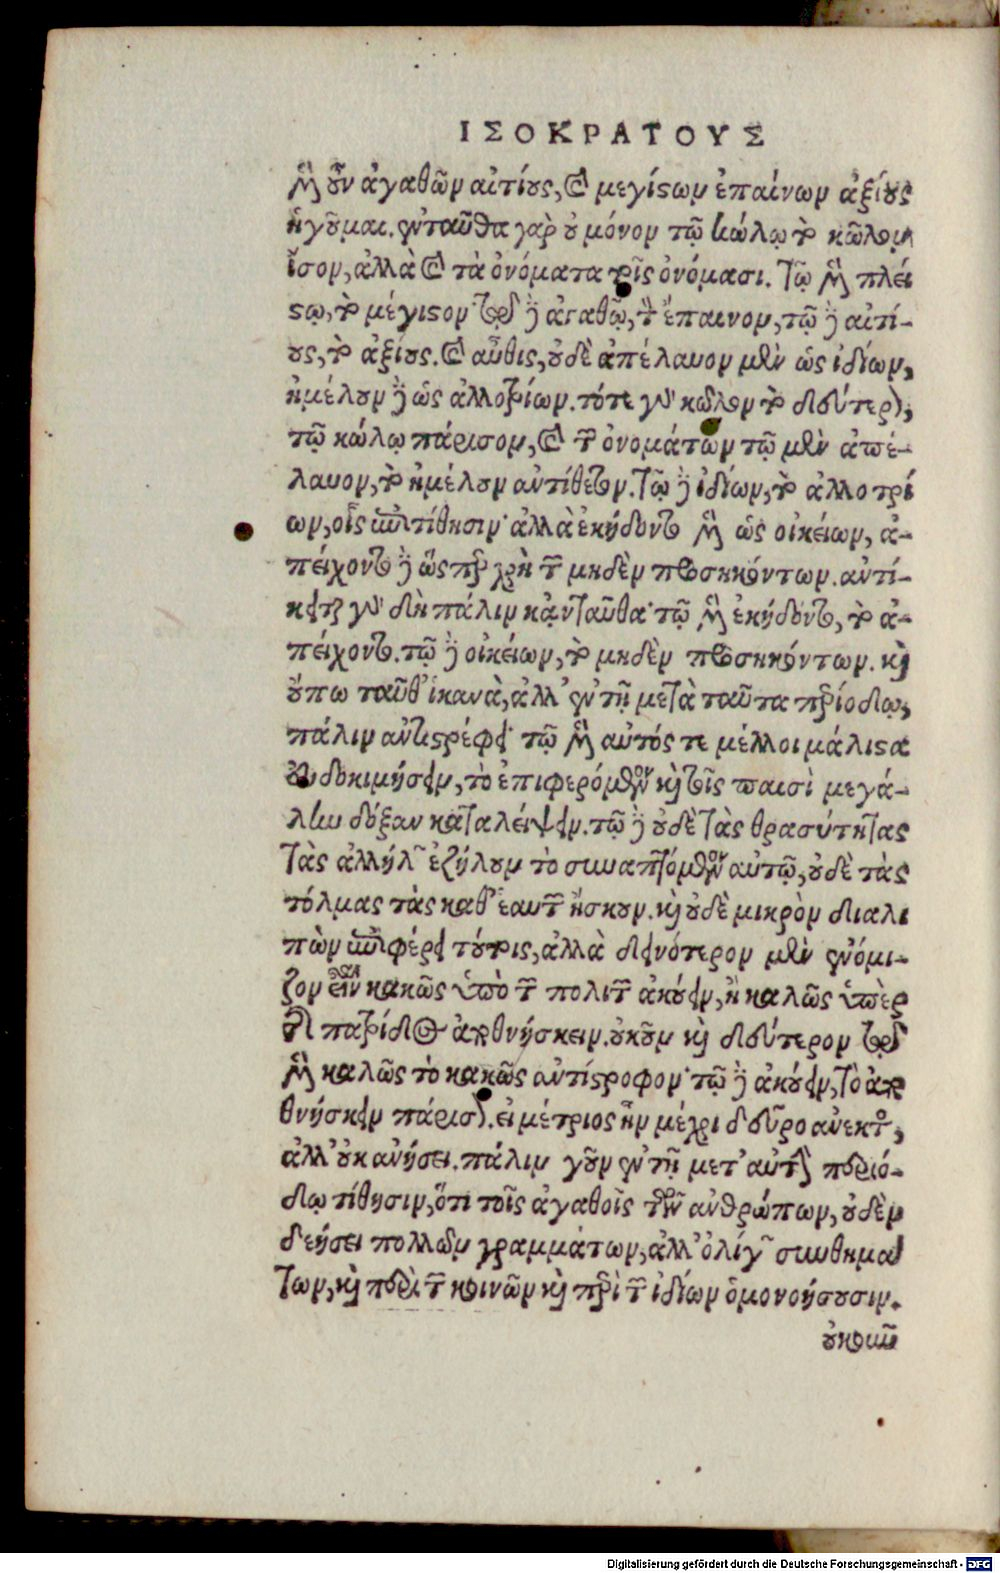 ΙΣΟΚΡΑΤΟΥΣ
μὲν οὖν ἀγαθῶν αἰτίους, καὶ μεγίστων ἐπαίνων ἀξίους
ἡγοῦμαι. ἐνταῦθα γὰρ οὐ μόνον τῷ κώλῳ τὸ κῶλον
ἴσον, ἀλλὰ καὶ τὰ ὀνόματα τοῖς ὀνόμασι. τῷ μὲν πλεί
στῳ, τὸ μέγιστον· τῷ δὲ ἀγαθῷ, τὸν ἔπαινον, τῷ δὲ αἰτί-
ους, τὸ ἀξίους. καὶ αὖθις, οὐδὲ ἀπέλαυον μὲν ὡς ἰδίων,
ἠμέλουν δὲ ὡς ἀλλοτρίων. τότε γὰρ κῶλον τὸ δεύτερον,
τῷ κώλῳ πάρισον, καὶ τῶν ὀνομάτων τῷ μὲν ἀπέ-
λαυον, τὸ ἠμέλουν ἀντίθετον. τῷ δὲ ἰδίων, τὸ ἀλλοτρί
ων, οἷς ἐπιτίθησιν· ἀλλὰ ἐκήδοντο μὲν ὡς οἰκείων, ἀ-
πείχοντο δὲ ὥσπερ χρὴ τῶν μηδὲν προσηκόντων. ἀντί-
κειται γὰρ δὴ πάλιν κἀνταῦθα· τῷ μὲν ἐκήδοντο, τὸ ἀ-
πείχοντο. τῷ δὲ οἰκείων, τὸ μηδὲν προσηκόντων. καὶ
οὔπω ταῦθ' ἱκανὰ, ἀλλ' ἐν τῇ μετὰ ταῦτα περιόδῳ,
πάλιν ἀντιστρέφει· τῷ μὲν αὐτός τε μέλλοι μάλιστα
εὐδοκιμήσειν, τὸ ἐπιφερόμενον καὶ τοῖς παισὶ μεγά-
λην δόξαν καταλείψειν. τῷ δὲ οὐδὲ τὰς θρασύτητας
τὰς ἀλλήλων ἐζήλουν τὸ συναπτόμενον αὐτῷ, οὐδὲ τὰς
τόλμας τὰς καθ' ἑαυτῶν ἤσκουν. καὶ οὐδὲ μικρὸν διαλι
πὼν ἐπιφέρει τούτοις, ἀλλὰ δεινότερον μὲν ἐνόμι-
ζον εἶναι κακῶς ὑπὸ τῶν πολιτῶν ἀκούειν, ἢ καλῶς ὑπὲρ
τῆς πατρίδος ἀποθνήσκειν. οὐκοῦν καὶ δεύτερον τῷ
μὲν καλῶς τὸ κακῶς ἀντίστροφον· τῷ δὲ ἀκούειν, τὸ ἀπο
θνήσκειν πάρισον. εἰ μέτριος ἦν μέχρι δεῦρο ἀνεκτὸς,
ἀλλ' οὐκ ἀνήσει. πάλιν γοῦν ἐν τῇ μετ' αὐτὴν περιό-
δῳ τίθησιν, ὅτι τοῖς ἀγαθοῖς τῶν ἀνθρώπων, οὐδὲν
δεήσει πολλῶν γραμμάτων, ἀλλ' ὀλίγων συνθημά
των, καὶ περὶ τῶν κοινῶν καὶ περὶ τῶν ἰδίων ὁμονοήσουσιν.
οὐκοῦν
Digitalisierung gefördert durch die Deutsche Forschungsgemeinschaft - DFG